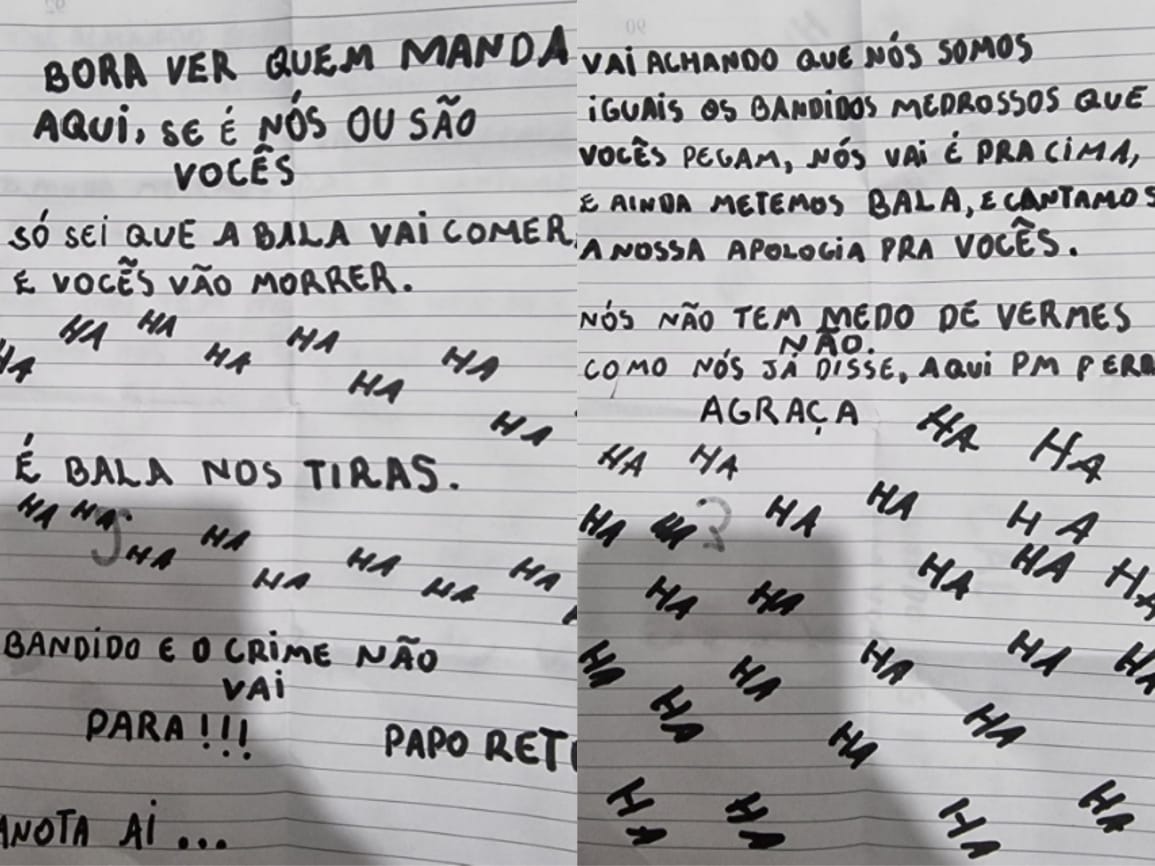 BORA VER QUEM MANDA
AQUI, SE É NÓS OU SÃO
VOCÊS
SÓ SEI QUE A BALA VAI COMER,
E VOCÊS VÃO MORRER.
HA HA HA HA
HA HA HA
HA
É BALA NOS TIRAS.
HA HA HA HA
HA HA HA HA
BANDIDO E O CRIME NÃO
VAI
PARA!!!
PAPO RETO
ANOTA AÍ...
VAI ACHANDO QUE NÓS SOMOS
IGUAIS OS BANDIDOS MEDROSSOS QUE
VOCÊS PEGAM, NÓS VAI É PRA CIMA,
E AINDA METEMOS BALA, E CANTAMOS
A NOSSA APOLOGIA PRA VOCÊS.
NÓS NÃO TEM MEDO DE VERMES
NÃO.
COMO NÓS JÁ DISSE, AQUI PM PERD
A GRAÇA HA HA
HA HA
HA HA HA HA HA
HA HA HA
HA HA
HA HA HA HA HA
HA HA HA
HA HA HA HA